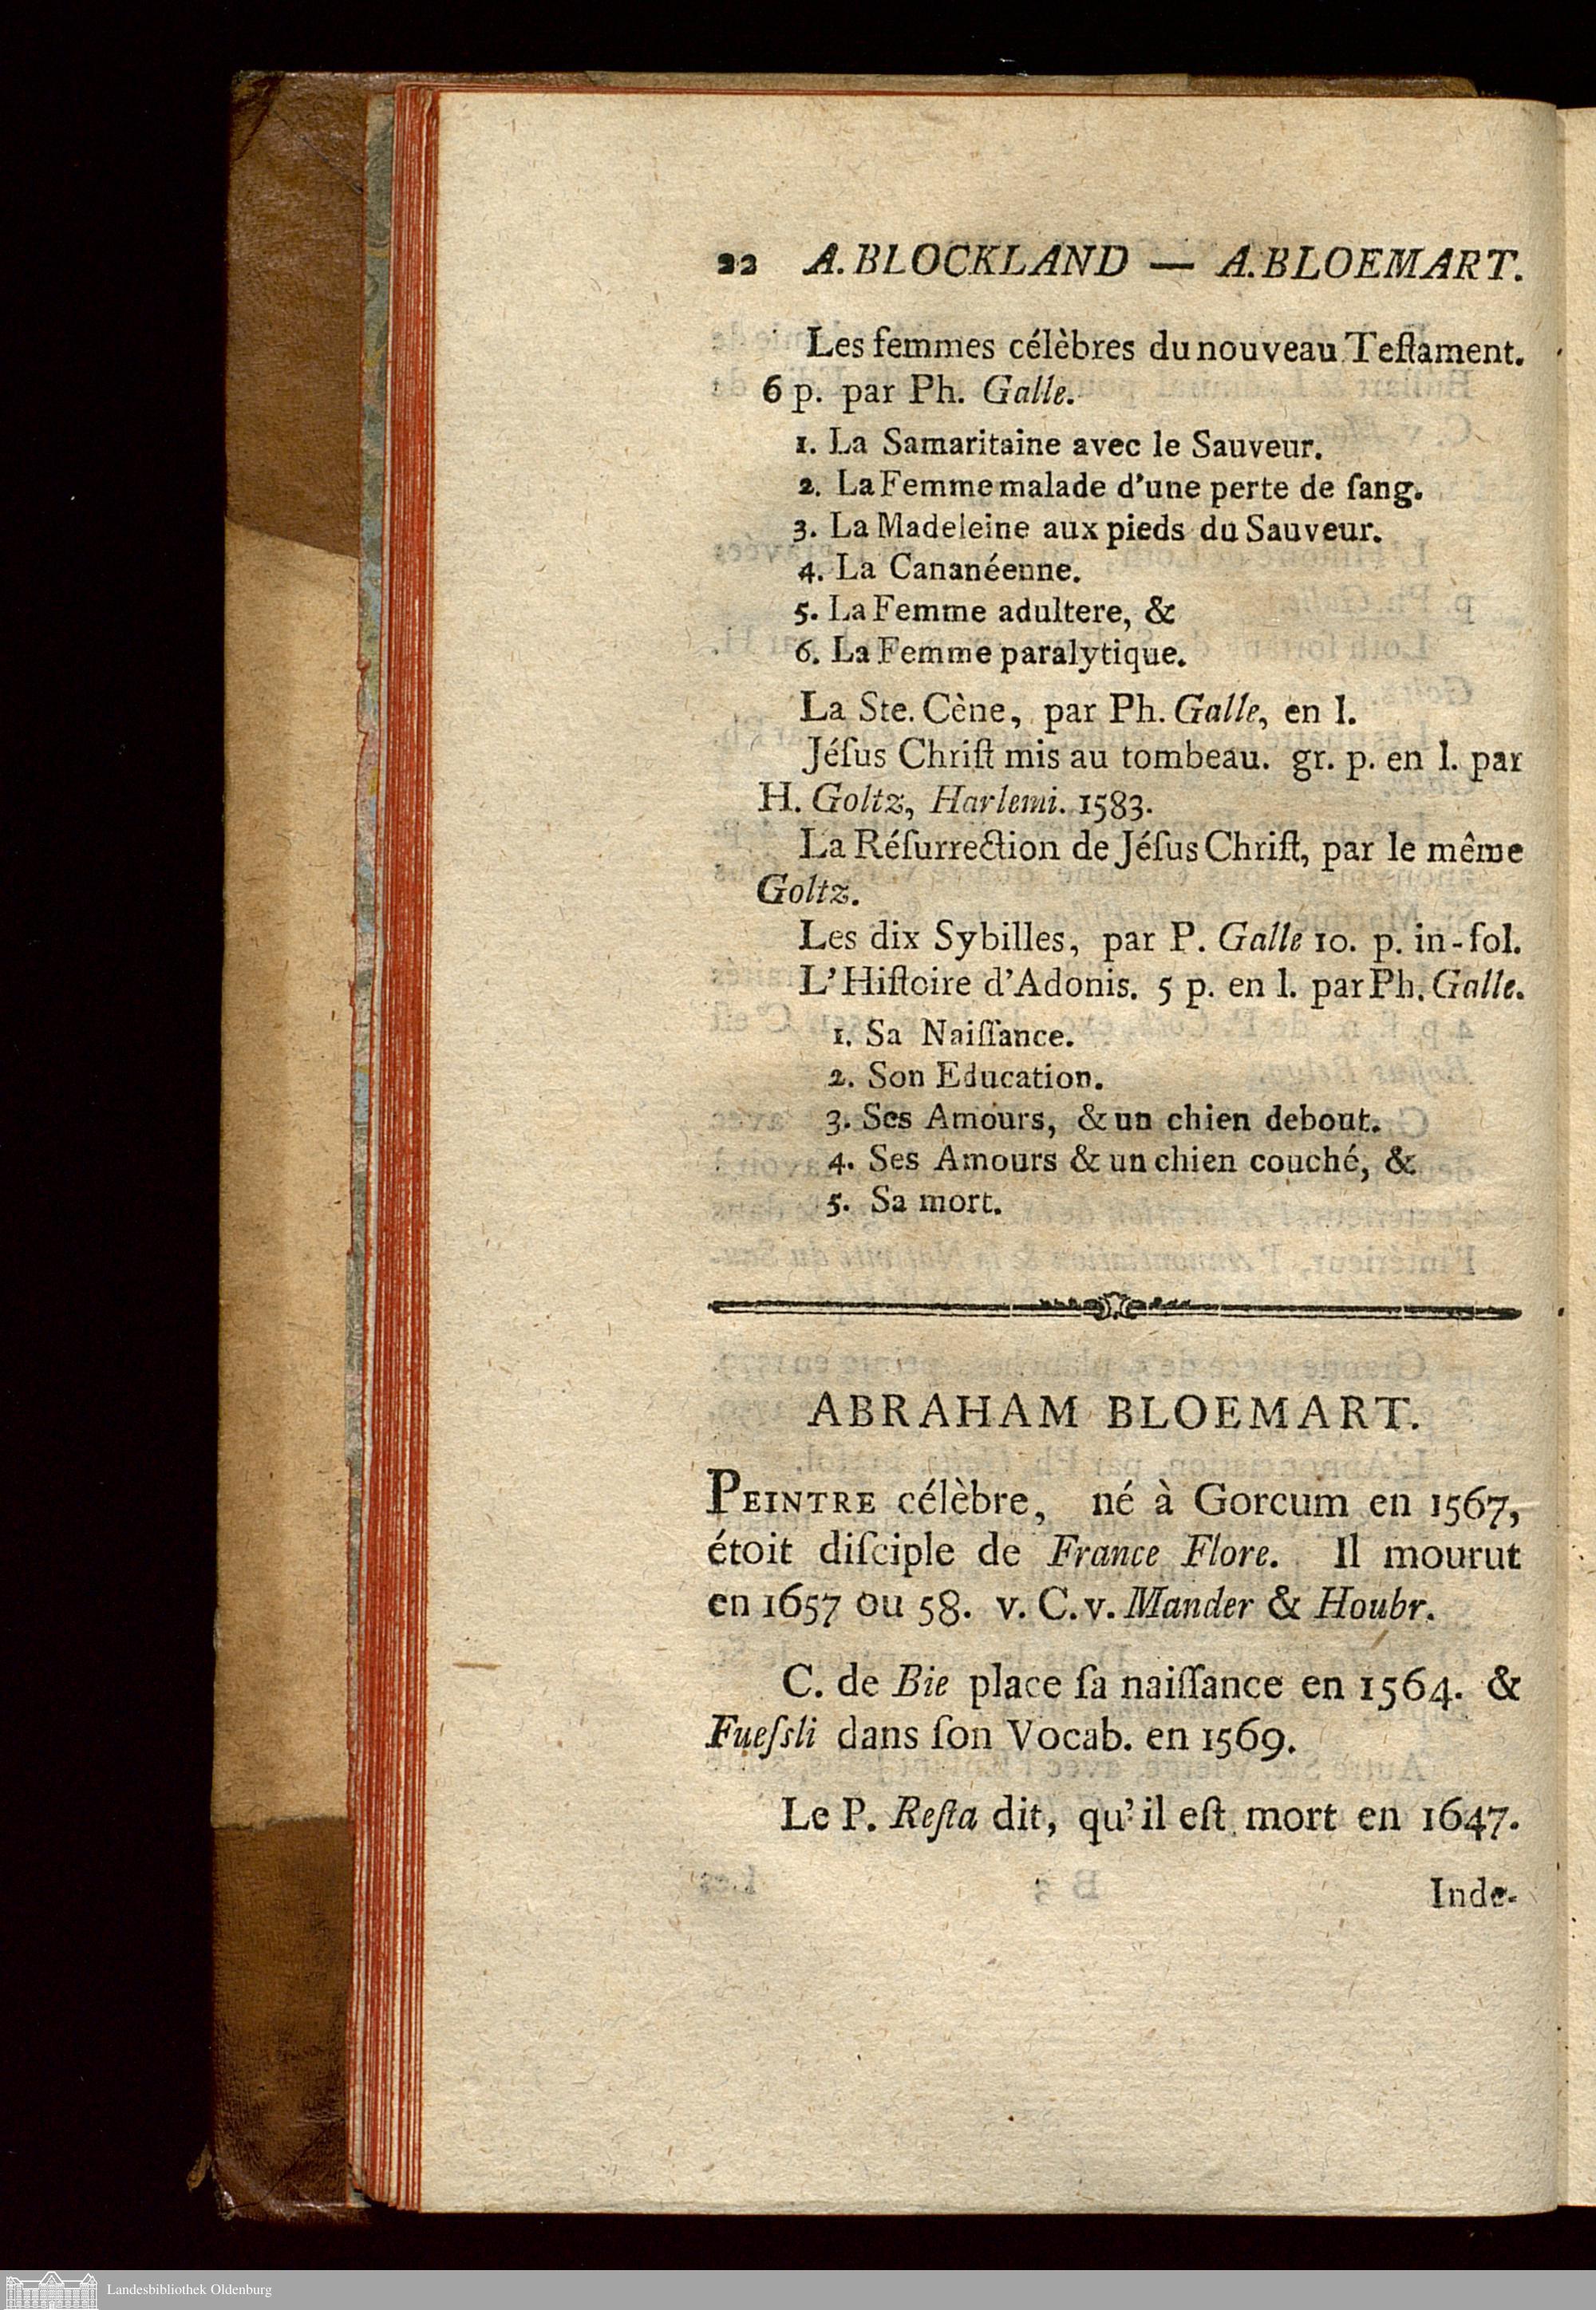 22 A. BLOCKLAND — A. BLOEMART.
Les femmes célèbres du nouveau Teſtament.
6 p. par Ph. Galle.
1. La Samaritaine avec le Sauveur.
2. La Femme malade d'une perte de ſang.
3. La Madeleine aux pieds du Sauveur.
4. La Cananéenne.
5. La Femme adultere, &
6. La Femme paralytique.
La Ste. Cène, par Ph. Galle, en l.
Jéſus Chriſt mis au tombeau. gr. p. en l. par
H. Goltz, Harlemi. 1583.
La Réſurrection de Jéſus Chriſt, par le même
Goltz.
Les dix Sybilles, par P. Galle 10. p. in-fol.
L'Hiſtoire d'Adonis. 5 p. en l. par Ph. Galle.
1. Sa Naiſſance.
2. Son Education.
3. Ses Amours, & un chien debout.
4. Ses Amours & un chien couché, &
5. Sa mort.
ABRAHAM BLOEMART.
PEINTRE célèbre, né à Gorcum en 1567,
étoit diſciple de France Flore. Il mourut
en 1657 ou 58. v. C. v. Mander & Houbr.
C. de Bie place ſa naiſſance en 1564. &
Fueſsli dans ſon Vocab. en 1569.
Le P. Reſta dit, qu'il eſt mort en 1647.
Inde-
Landesbibliothek Oldenburg